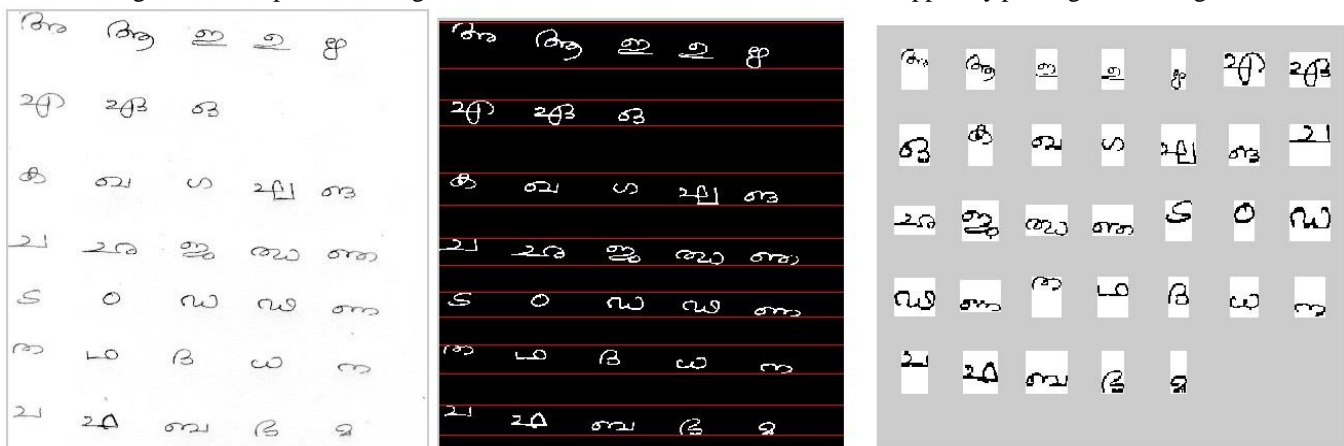 അ ആ ഇ ഉ ഋ
എ ഏ ഒ
ക ഖ ഗ ഘ ങ
ച ഛ ജ ഝ ഞ
ട ഠ ഡ ഢ ണ
ത ഥ ദ ധ ന
പ ഫ ബ ഭ മ
അ ആ ഇ ഉ ഋ
എ ഏ ഒ
ക ഖ ഗ ഘ ങ
ച ഛ ജ ഝ ഞ
ട ഠ ഡ ഢ ണ
ത ഥ ദ ധ ന
പ ഫ ബ ഭ മ
അ ആ ഇ ഉ ഋ എ ഏ
ഒ ക ഖ ഗ ഘ ങ ച
ഛ ജ ഝ ഞ ട ഠ ഡ
ഢ ണ ത ഥ ദ ധ ന
പ ഫ ബ ഭ മ